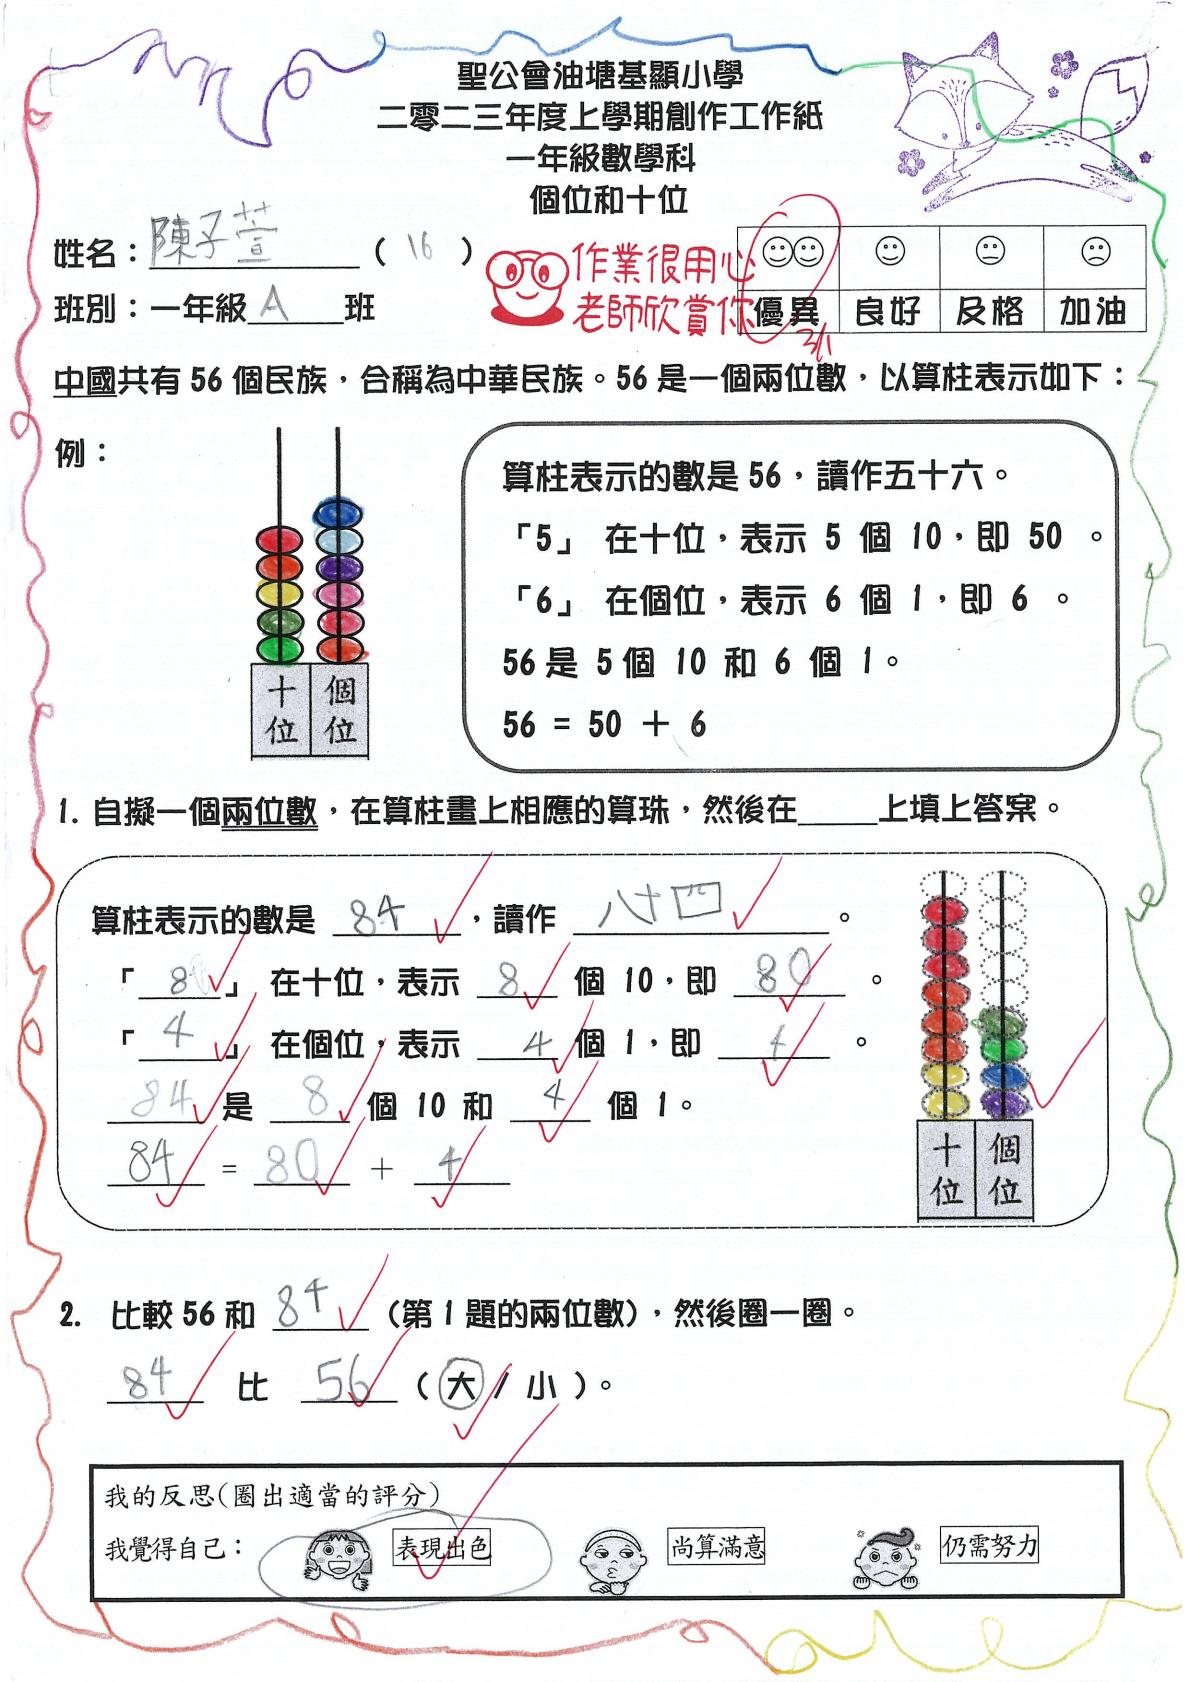 聖公會油塘基顯小學
二零二三年度上學期創作工作紙
一年級數學科
個位和十位
姓名：陳子萱 ( 16 )
班別：一年級 A 班
作業很用心
老師欣賞你
優異 良好 及格 加油
中國共有 56 個民族，合稱為中華民族。56 是一個兩位數，以算柱表示如下：
例：
十位 個位
算柱表示的數是 56，讀作五十六。
「5」 在十位，表示 5 個 10，即 50 。
「6」 在個位，表示 6 個 1，即 6 。
56 是 5 個 10 和 6 個 1。
56 = 50 + 6
1. 自擬一個兩位數，在算柱畫上相應的算珠，然後在_____上填上答案。
算柱表示的數是 84，讀作 八十四。
「8」 在十位，表示 8 個 10，即 80 。
「4」 在個位，表示 4 個 1，即 4 。
84 是 8 個 10 和 4 個 1。
84 = 80 + 4
十位 個位
2. 比較 56 和 84 (第 1 題的兩位數)，然後圈一圈。
84 比 56 ( 大 / 小 )。
我的反思(圈出適當的評分)
我覺得自己： 表現出色 尚算滿意 仍需努力